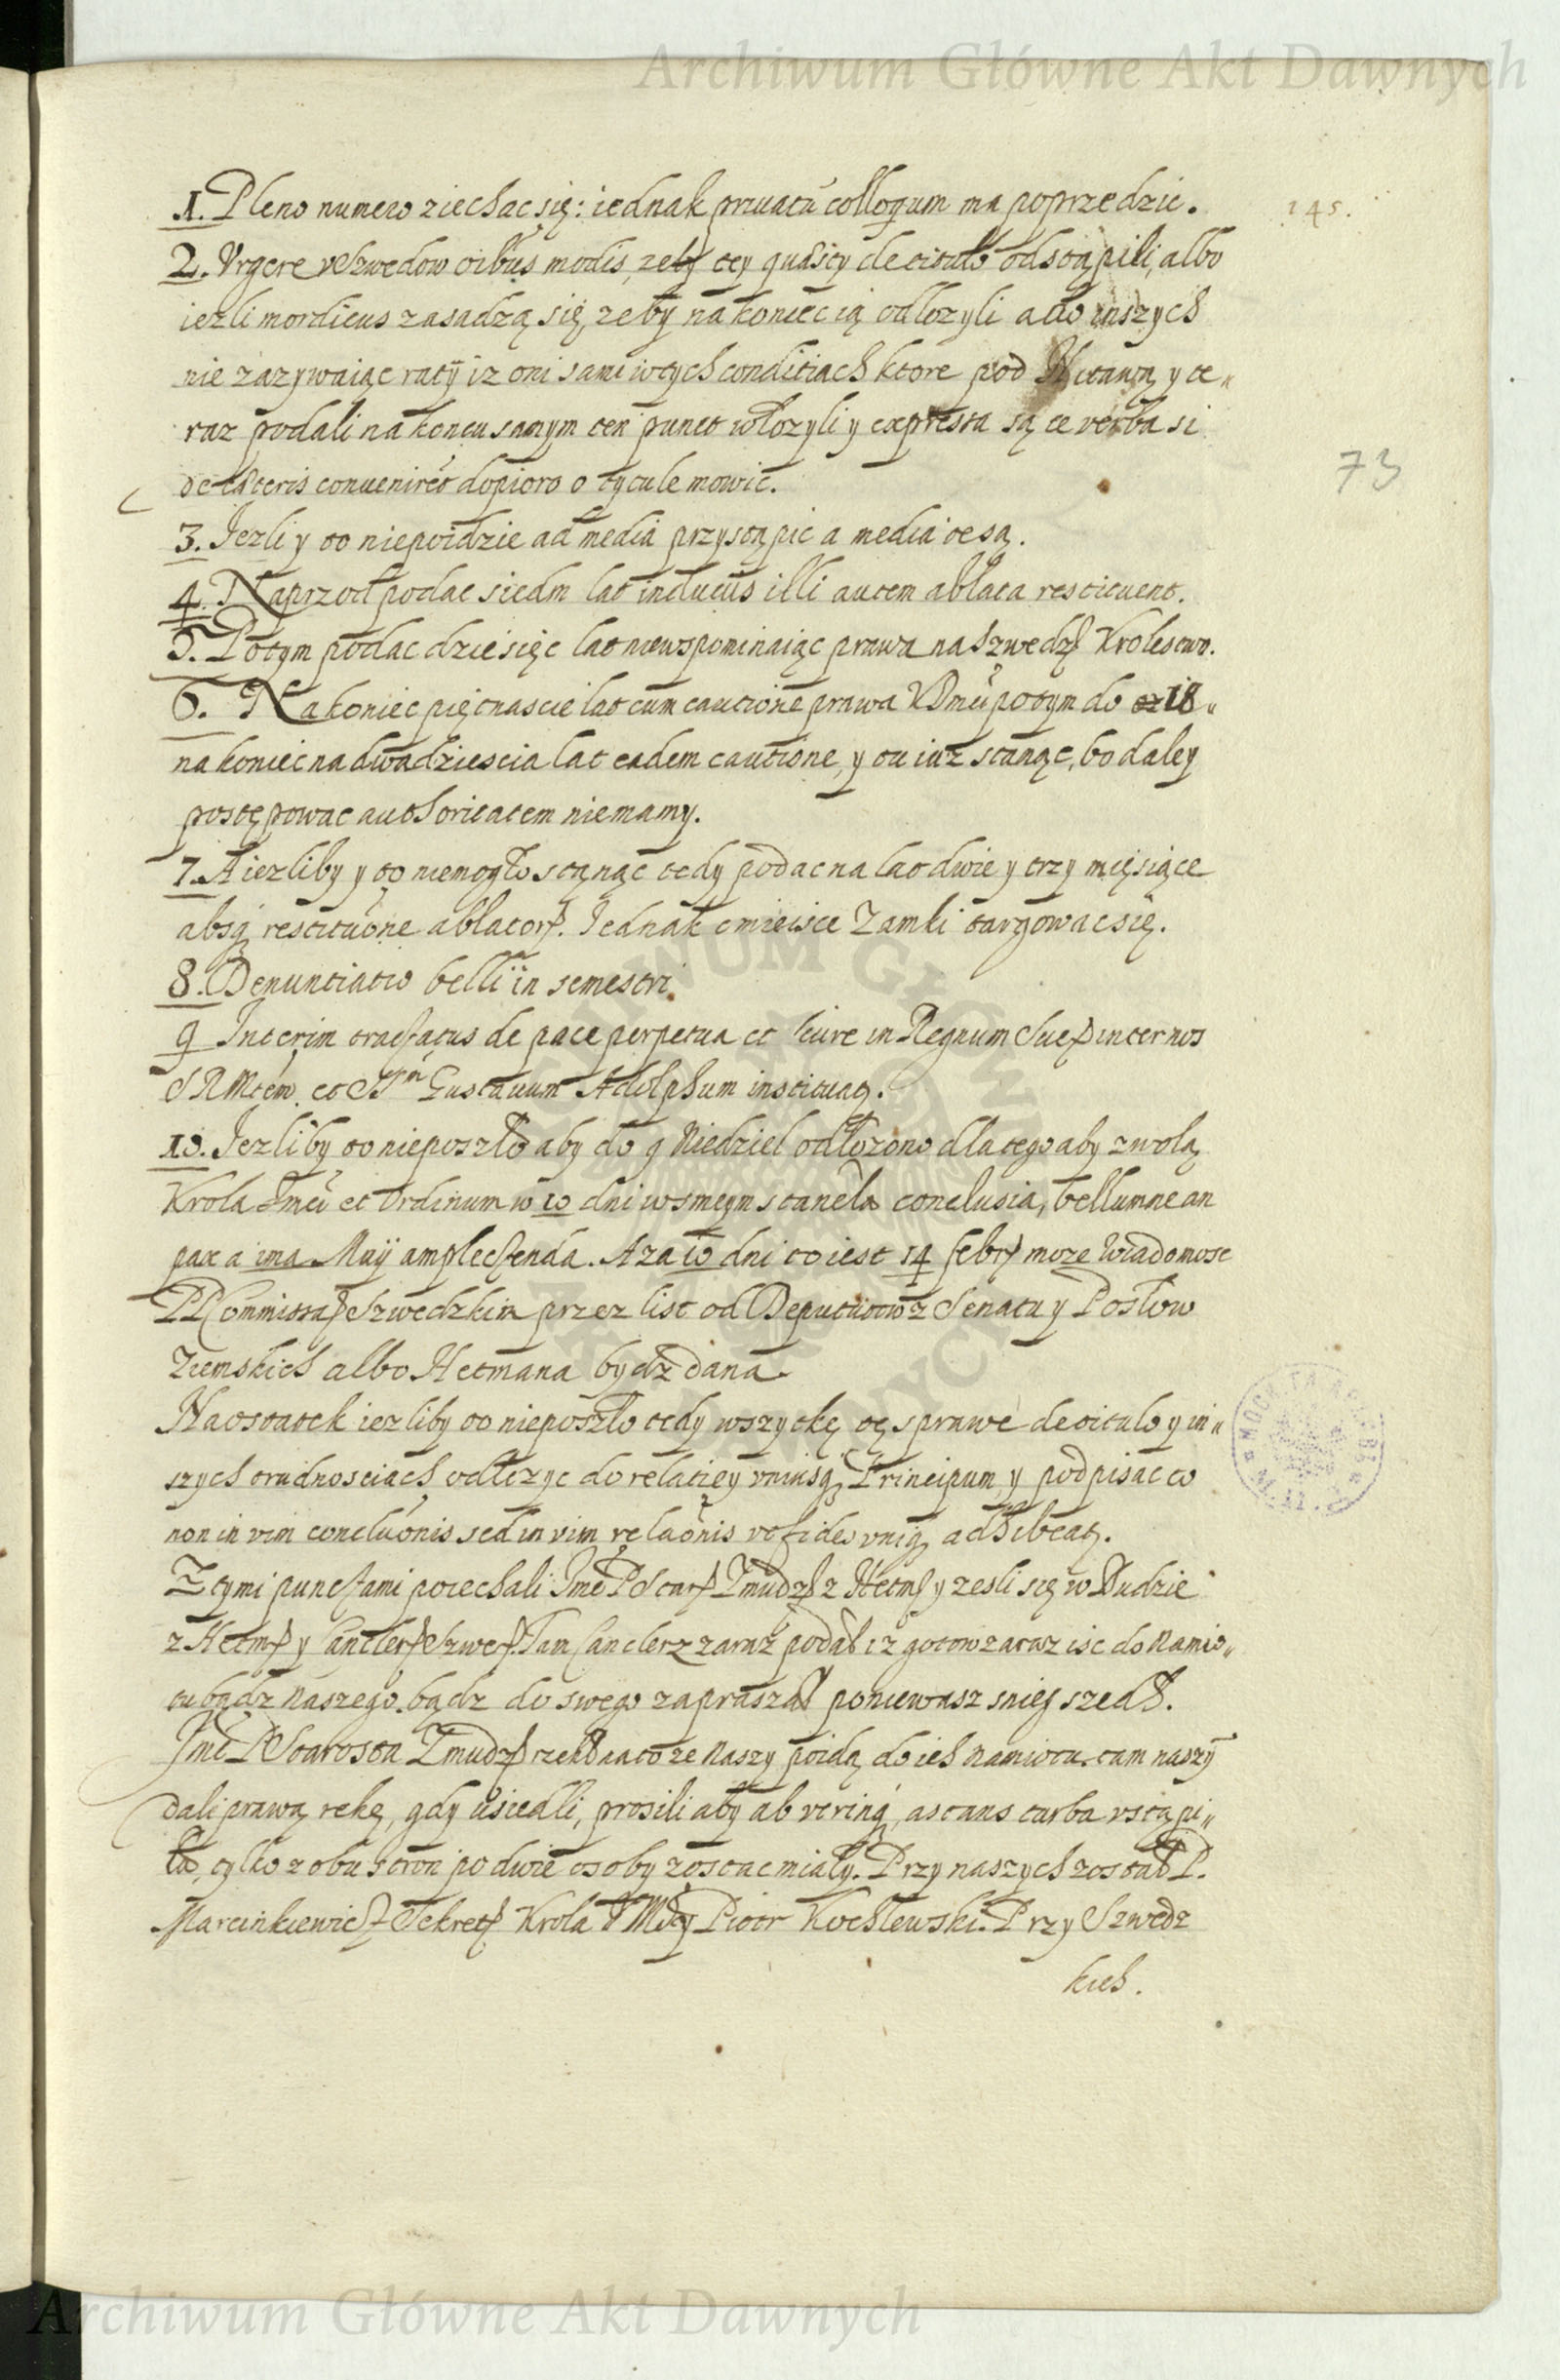 Archiwum Główne Akt Dawnych
145.
1. Pleno numero ziechac się: iednak privatū colloqium ma poprzedzic.
2. Vrgere v Szwedow oībus modis, zeby tey quaesty de titulo odstąpili, albo
iezli mordicus zasadzą się, zeby na koniec ią odlozyli a do inszych
nie zazywaiąc ratÿ iz oni sami w tych conditiach ktore pod Mitawą y te„
raz podali na koncu samym ten punct włozyli y expressa są te verba si
73
de caeteris convenirēt dopioro o tytule mowic.
3. Iezli y to niepoidzie ad media przystąpic a media te są.
4. Naprzod podac siedm lat inducijs illi autem ablata restituent.
5. Potym podac dziesięc lat niewspominaiąc prawa na Szwedz Krolestwo.
6. Na koniec piętnascie lat cum cautione prawa KJmci potym do 18„
na koniec na dwadziescia lat eadem cautione, y tu iuz stanąc, bo daley
postępowac authoritatem niemamy.
7. A iezliby y to niemogło stanąc tedy podac na lat dwie y trzy mięsiące
absq restitutione ablator. Iednak o mieisce Zamki targowac się.
8. Denuntiatio belli in semestri.
9 Interim tractatus de pace perpetua et iure in Regnum Suec inter nos
SRMtem et Gustauum Adolphum instituat.
10. Iezliby to nieposzło aby do 9 Niedziel odłozono dla tego aby z wolą
Krola Jmci et Ordinum w 10 dni w smeym stanela conclusia, bellumne an
pax a ima Maij amplectenda. A za 10 dni to iest 14 febr moze wiadomosc
PP Commissar Szwedzkim przez list od Deputatow z Senatu y Posłow
Ziemskich albo Hetmana bydz dana.
Naostatek iezliby to nieposzło tedy wszytkę tę sprawe de titulo y in„
szych trudnosciach odłozyc do relatiey vniusq Principum, y podpisac to
non in vim conclusionis sed in vim relaōnis vt fides vniq adhibeat.
Z tymi punctami poiechali Jmc P Star Zmudz z Hetm y zesli się w Budzie
z Hetm y Cancler Szwe. Tam Canclerz zaraz podał iz gotow zaraz isc do Namio„
tu bądz naszego bądz do swego zapraszał poniewasz snieg szedł.
Jmc P Starosta Zmudz rzekł na to ze naszy poidą do ich namiotu. tam naszÿ
dali prawą rekę, gdy usiedli, prosili aby ab vtrinq astans turba vstąpi„
ła, tylko z obu stron po dwie osoby zostac miały. Przy naszych został P.
Marcinkiewicz Sekret Krola JMci y Piotr Kochlewski. Przy Szwedz
kich.
Archiwum Główne Akt Dawnych